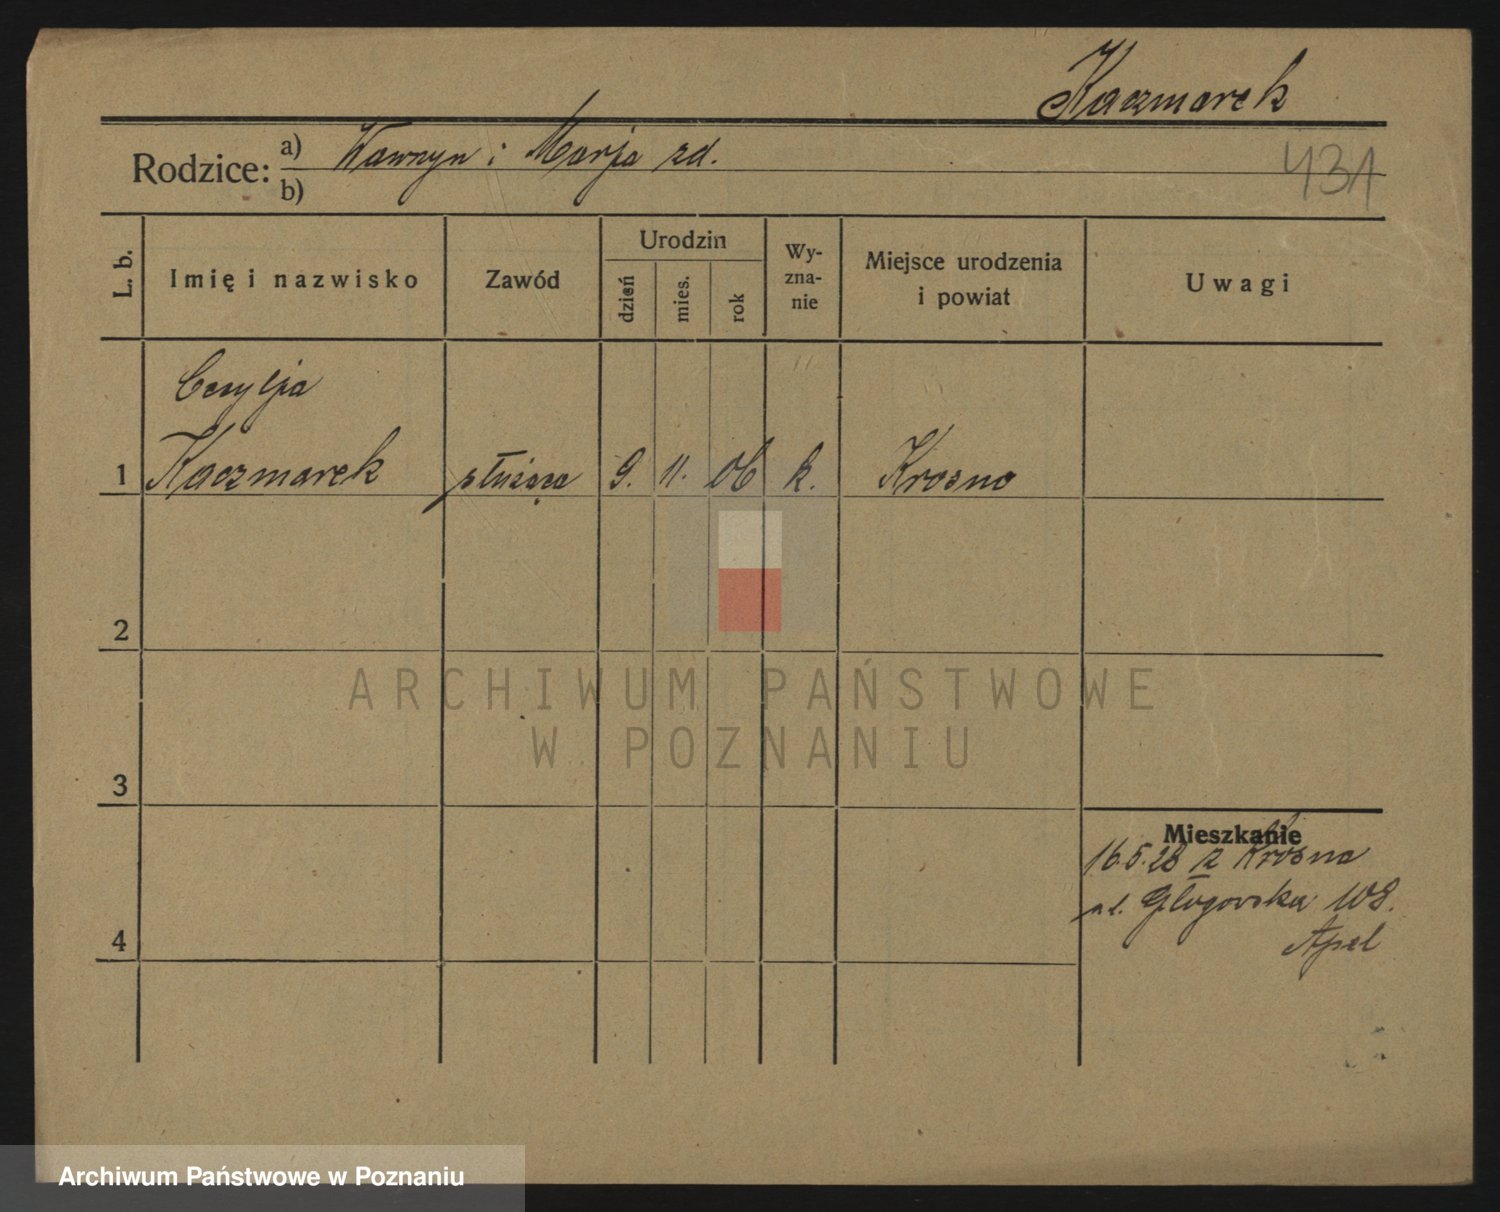 Kaczmarek
Rodzice: a) Wawrzyn i Marja zd.
b)
431
L. b. Imię i nazwisko Zawód Urodzin dzień mies. rok Wy-zna-nie Miejsce urodzenia i powiat Uwagi
Cecylja
1 Kaczmarek służąca 9. 11. 06 k. Krosno
2
ARCHIWUM PAŃSTWOWE
W POZNANIU
3
Mieszkanie
16.5.28 z Krosna
ul. Głogowska 108.
Apel
4
Archiwum Państwowe w Poznaniu